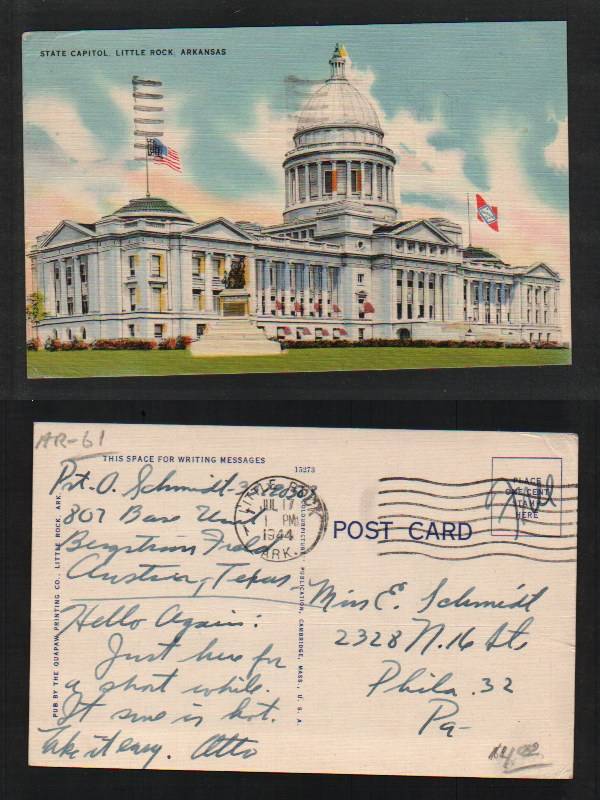 STATE CAPITOL, LITTLE ROCK, ARKANSAS
AR-61
THIS SPACE FOR WRITING MESSAGES
15273
Pvt. O. Schmidt
807 Base Unit
Bergstrom Field
Austin, Texas
Hello Again:
Just here for
a short while.
It sure is hot.
Take it easy. Otto
PUB BY THE QUAPAW PRINTING CO., LITTLE ROCK, ARK.
COLOURPICTURE PUBLICATION, CAMBRIDGE, MASS., U. S. A.
LITTLE ROCK
JUL 17
1 PM
1944
ARK.
POST CARD
PLACE
ONE CENT
HERE
Free
Miss E. Schmidt
2328 N. 16 St.
Phila. 32
Pa-